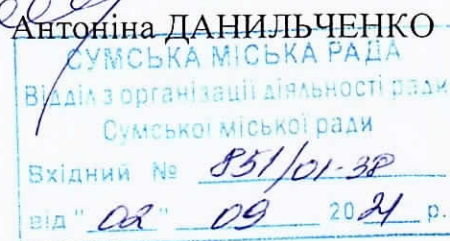 Антоніна ДАНИЛЬЧЕНКО
СУМСЬКА МІСЬКА РАДА
Відділ з організації діяльності ради
Сумської міської ради
Вхідний № 851/01-38
від " 02 " 09 2021 р.